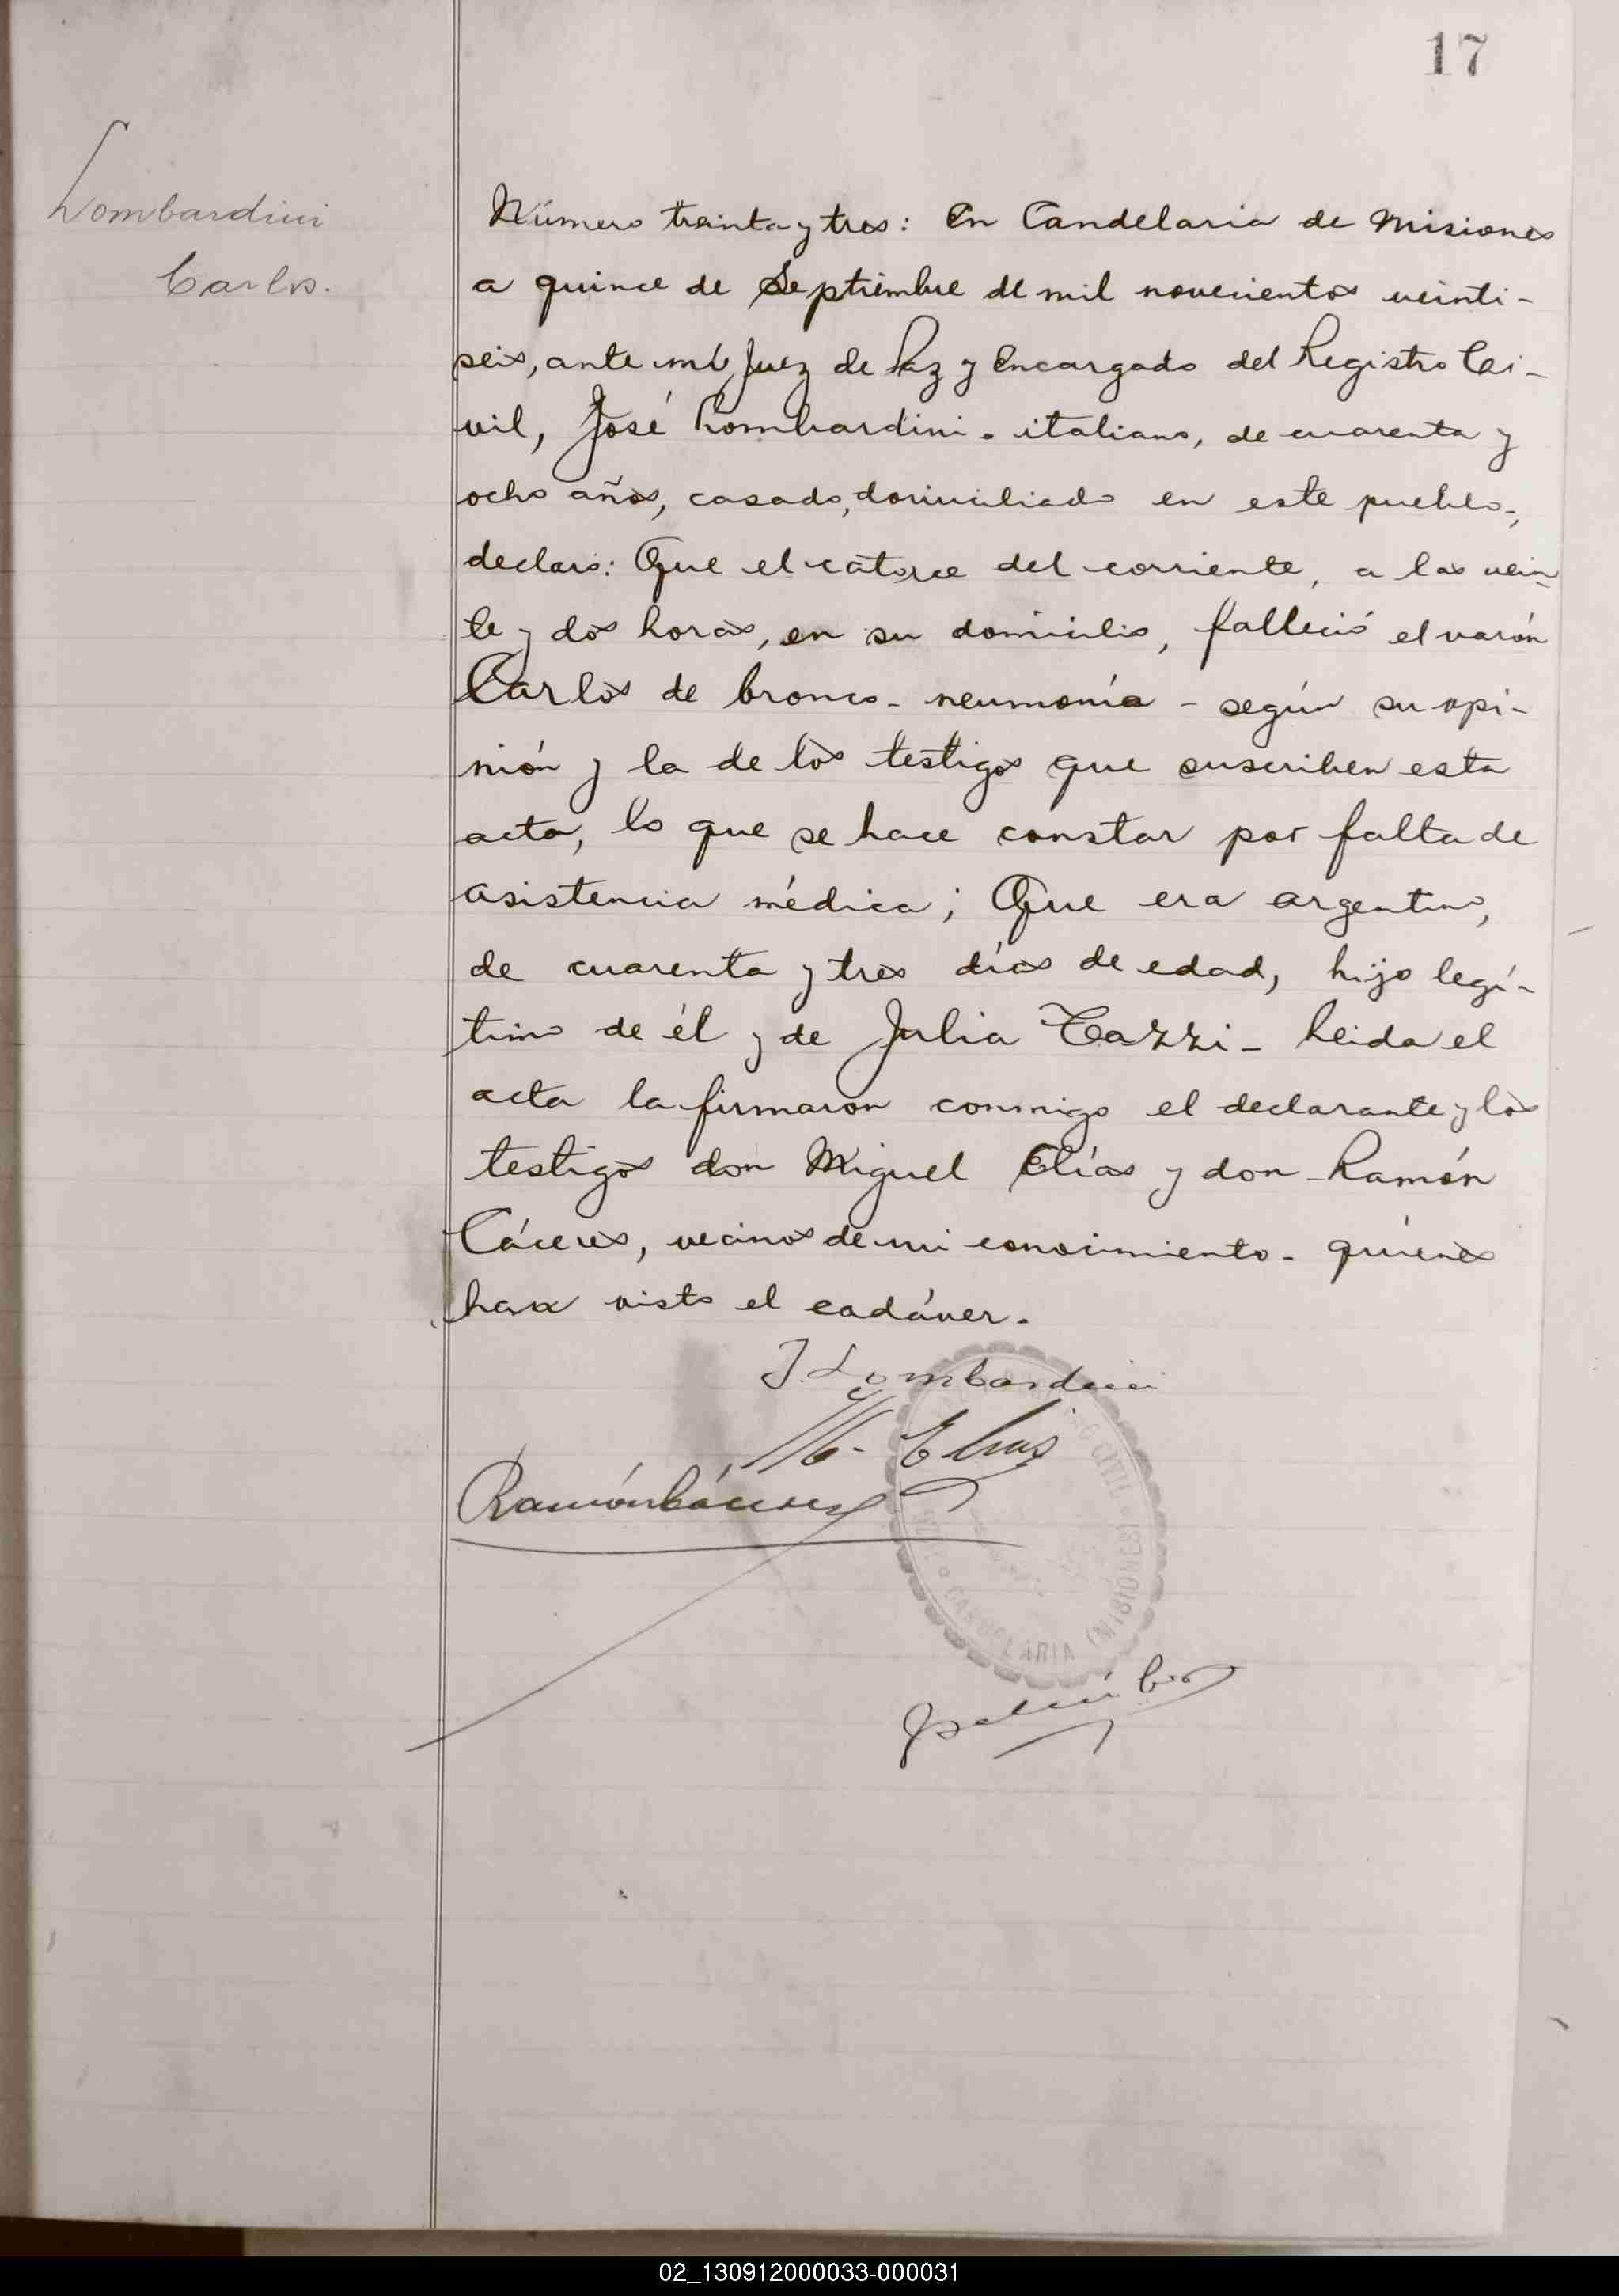 17
Lombardini
Carlos.
Número treinta y tres: En Candelaria de Misiones
a quince de Septiembre de mil novecientos veinti-
seis, ante mí, Juez de Paz y Encargado del Registro Ci-
vil, José Lombardini - italiano, de cuarenta y
ocho años, casado, domiciliado en este pueblo,
declaró: Que el catorce del corriente, a las vein-
te y dos horas, en su domicilio, falleció el varón
Carlos de bronco-neumonía - según su opi-
nión y la de los testigos que suscriben esta
acta, lo que se hace constar por falta de
asistencia médica; Que era argentino,
de cuarenta y tres días de edad, hijo legí-
timo de él y de Julia Tazzi - Leida el
acta la firmaron conmigo el declarante y los
testigos don Miguel Elías y don Ramón
Cáceres, vecinos de mi conocimiento - quienes
han visto el cadáver.
J Lombardini
M. Elias
Ramón Cáceres
CIVIL
CANDELARIA (MISIONES)
02_130912000033-000031